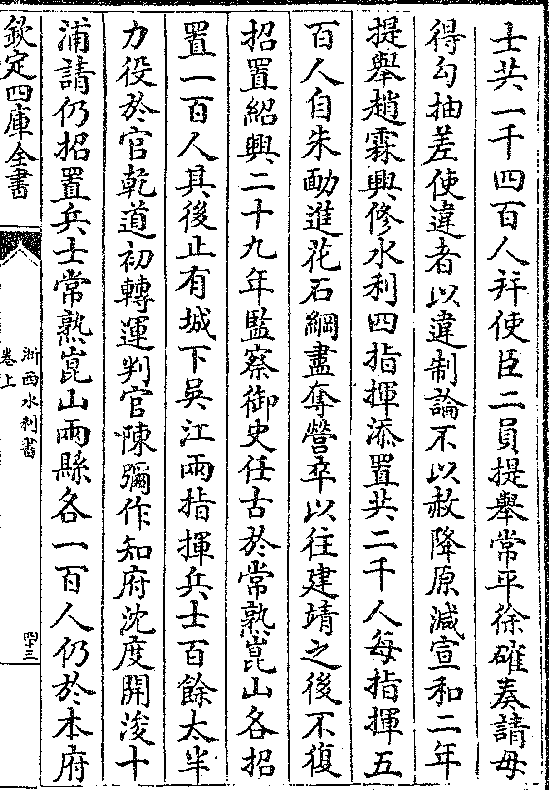 士共一千四百人并使臣二員提舉常平徐確奏請毋
得勾抽差使違者以違制論不以赦降原減宣和二年
提舉趙霖興修水利四指揮添置共二千人每指揮五
百人自朱勔進花石綱盡奪營卒以往建靖之後不復
招置紹興二十九年監察御史任古於常熟崑山各招
置一百人具後止有城下吳江兩指揮兵士百餘太半
力役於官乾道初轉運判官陳彌作知府沈度開浚十
浦請仍招置兵士常熟崑山兩縣各一百人仍於本府
欽定四庫全書
浙西水利書
卷上
四十三